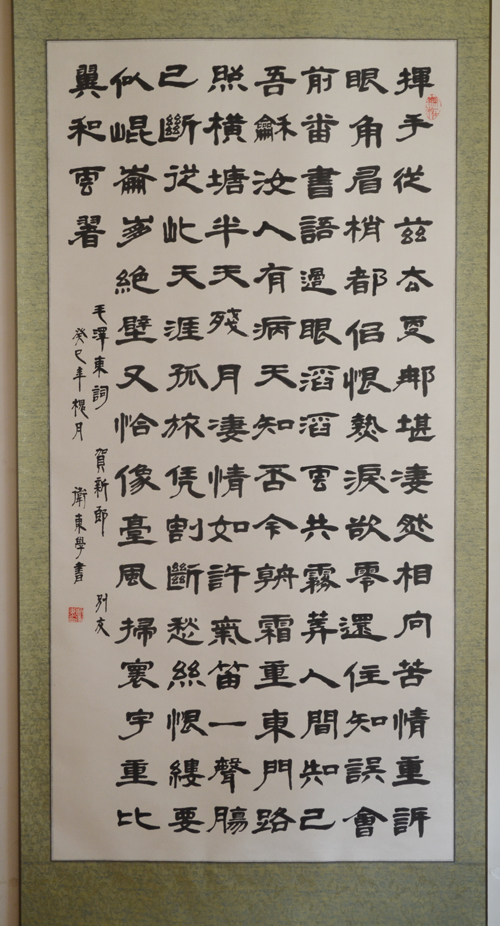 揮手從茲去更那堪凄然相向苦情重訴
眼角眉梢都佀恨熱淚欲零還住知誤會
前番書語過眼滔滔雲共霧算人間知己
吾龢汝人有病天知否今朝霜重東門路
照橫塘半天殘月凄情如許氣笛一聲腸
已斷從此天涯孤旅凭割斷愁絲恨縷要
似崐崙崩絕壁又恰像臺風掃寰宇重比
翼和雲翥
毛澤東詞 賀新郎 別友
癸巳年月 衛東學書